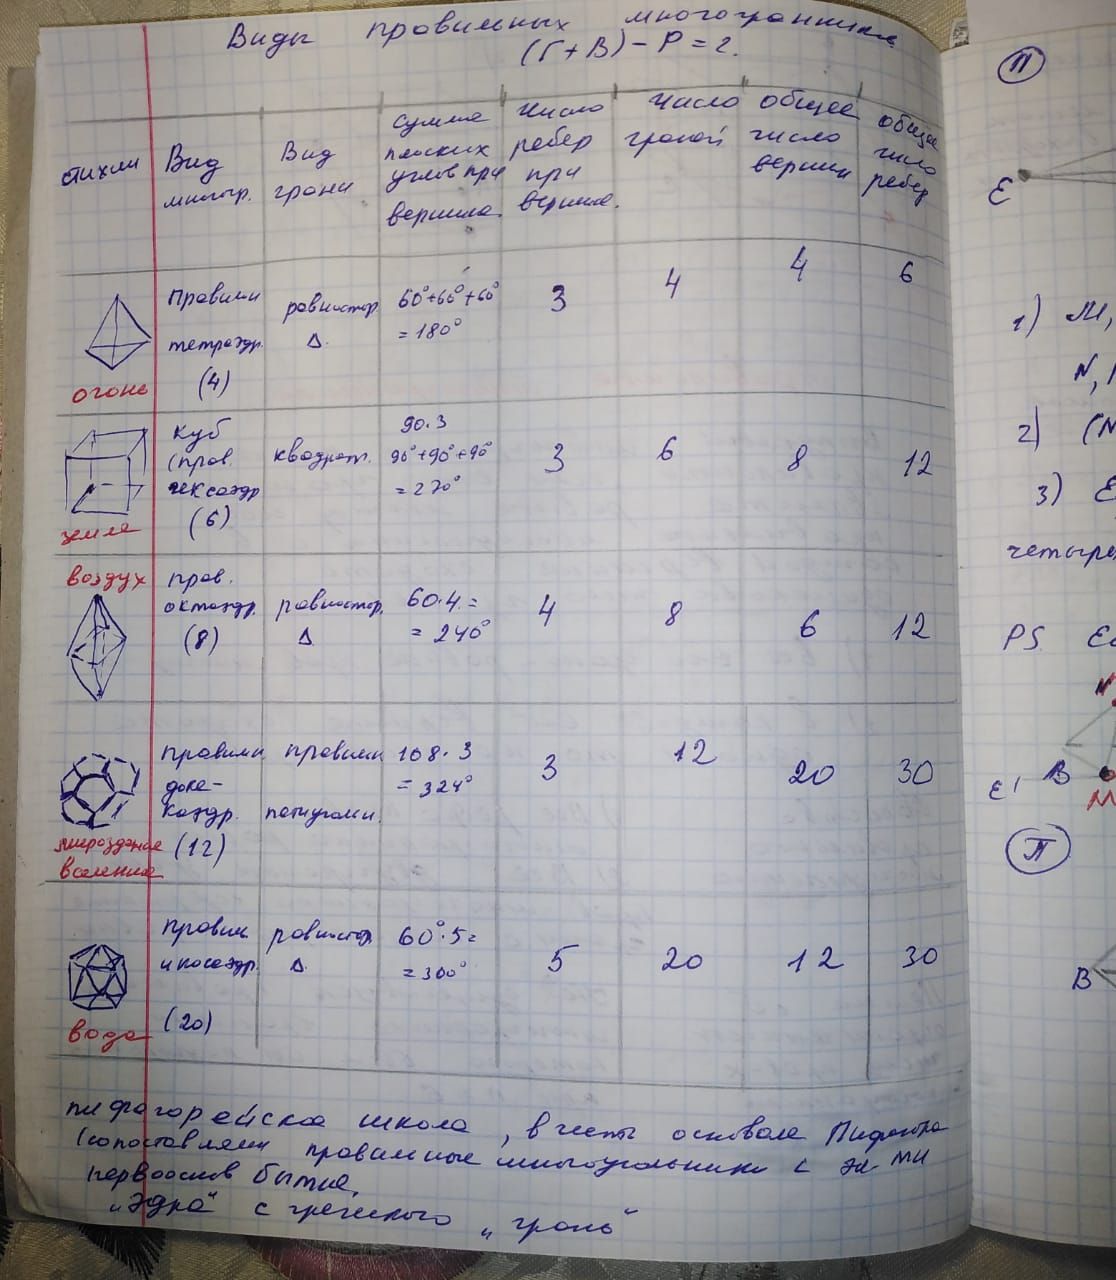 Виды правильных многогранников
(Г+В) - Р = 2.
стихии
Вид
многр.
Вид
грани
Сумма
плоских
углов при
вершине
Число
ребер
при
вершине.
Число
граней
общее
число
вершин
общее
число
ребер
огонь
Правильн
тетраэдр.
(4)
равностор.
Δ.
60°+60°+60°
=180°
3
4
4
6
земля
куб
(прав.
гексаэдр
(6)
квадрат.
90·3
90°+90°+90°
=270°
3
6
8
12
воздух
прав.
октаэдр.
(8)
равностор.
Δ
60·4=
=240°
4
8
6
12
мироздание
вселенная
правильн
доде-
каэдр.
(12)
правильн
пятиугольн.
108·3
=324°
3
12
20
30
вода
правильн.
икосаэдр.
(20)
равностор.
Δ
60°·5=
=300°
5
20
12
30
пифагорейская школа, в честь основала Пифагора
(сопоставляли правильные многоугольники с эл-ми
первооснов бытия,
"эдра" с греческого "грань"
П
E
1) M,
N,
2) (N
3) E
четыре
PS. Ес
N
B
M
E'
П
B